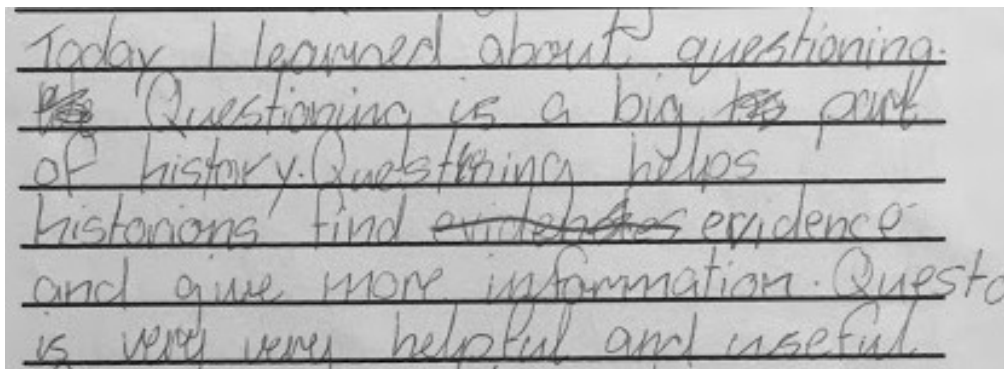 Today I learned about questioning.
Questioning is a big part
of history. Questioning helps
historions find evidence
and give more information. Questo
is very very helpful and useful